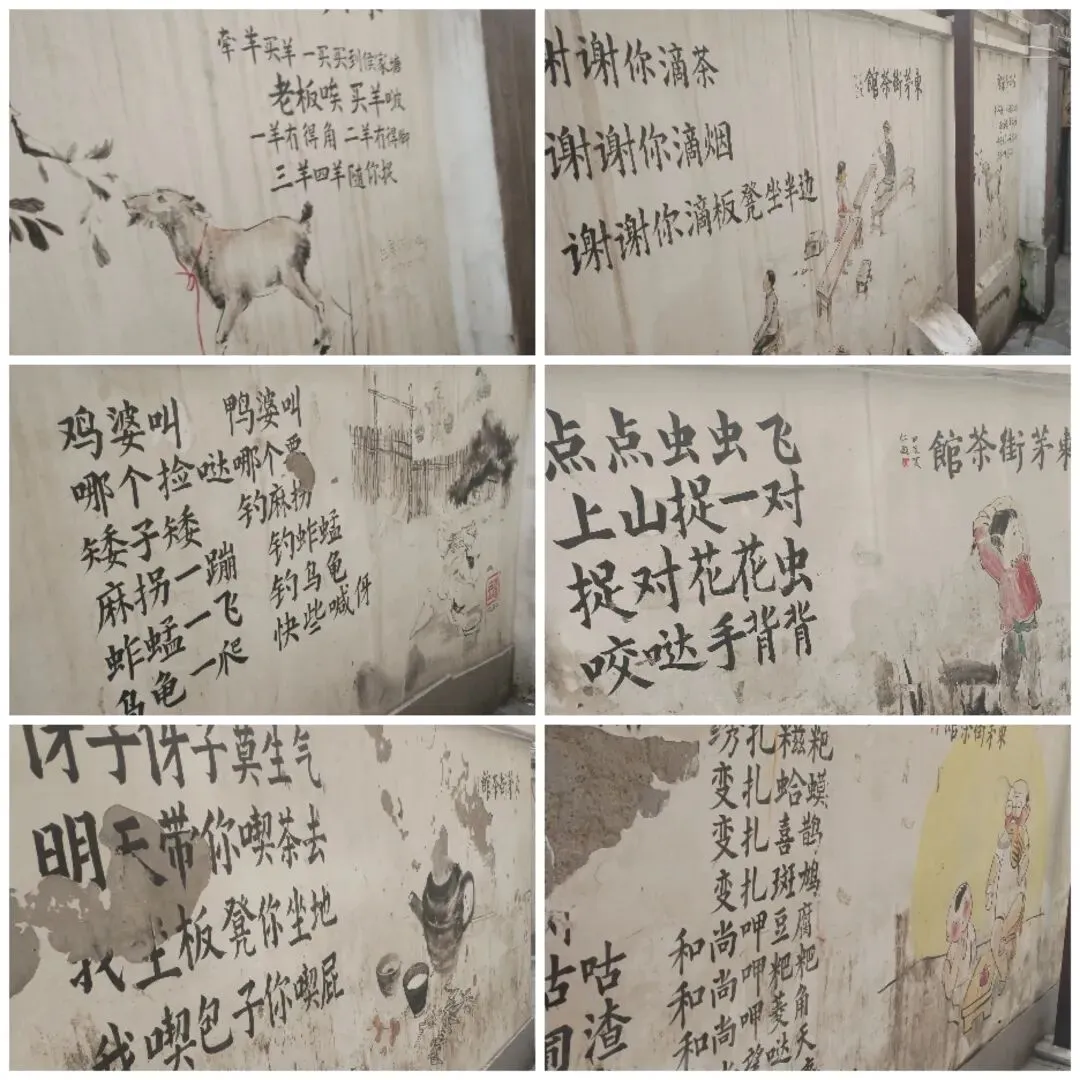 牵羊买羊 一买买到侯家塘
老板唉 买羊啵
一羊冇得角 二羊冇得脚
三羊四羊随你捉
谢你滴茶
谢谢你滴烟
谢谢你滴板凳坐半边
東茅街茶館
鸡婆叫
哪个捡哒
矮子矮
麻拐一蹦
蚱蜢一飞
乌龟一爬
鸭婆叫
哪个要
钓麻拐
钓蚱蜢
钓乌龟
快些喊伢
点点虫虫飞
上山捉一对
捉对花花虫
咬哒手背背
東茅街茶館
伢子伢子莫生气
明天带你喫茶去
我坐板凳你坐地
我喫包子你喫屁
茅街茶館
扎糍粑
变扎蛤蟆
变扎喜鹊
变扎斑鸠
和尚呷豆腐
和尚呷粑粑
和尚呷菱角
望哒天
咕咕
渣
東茅街茶館